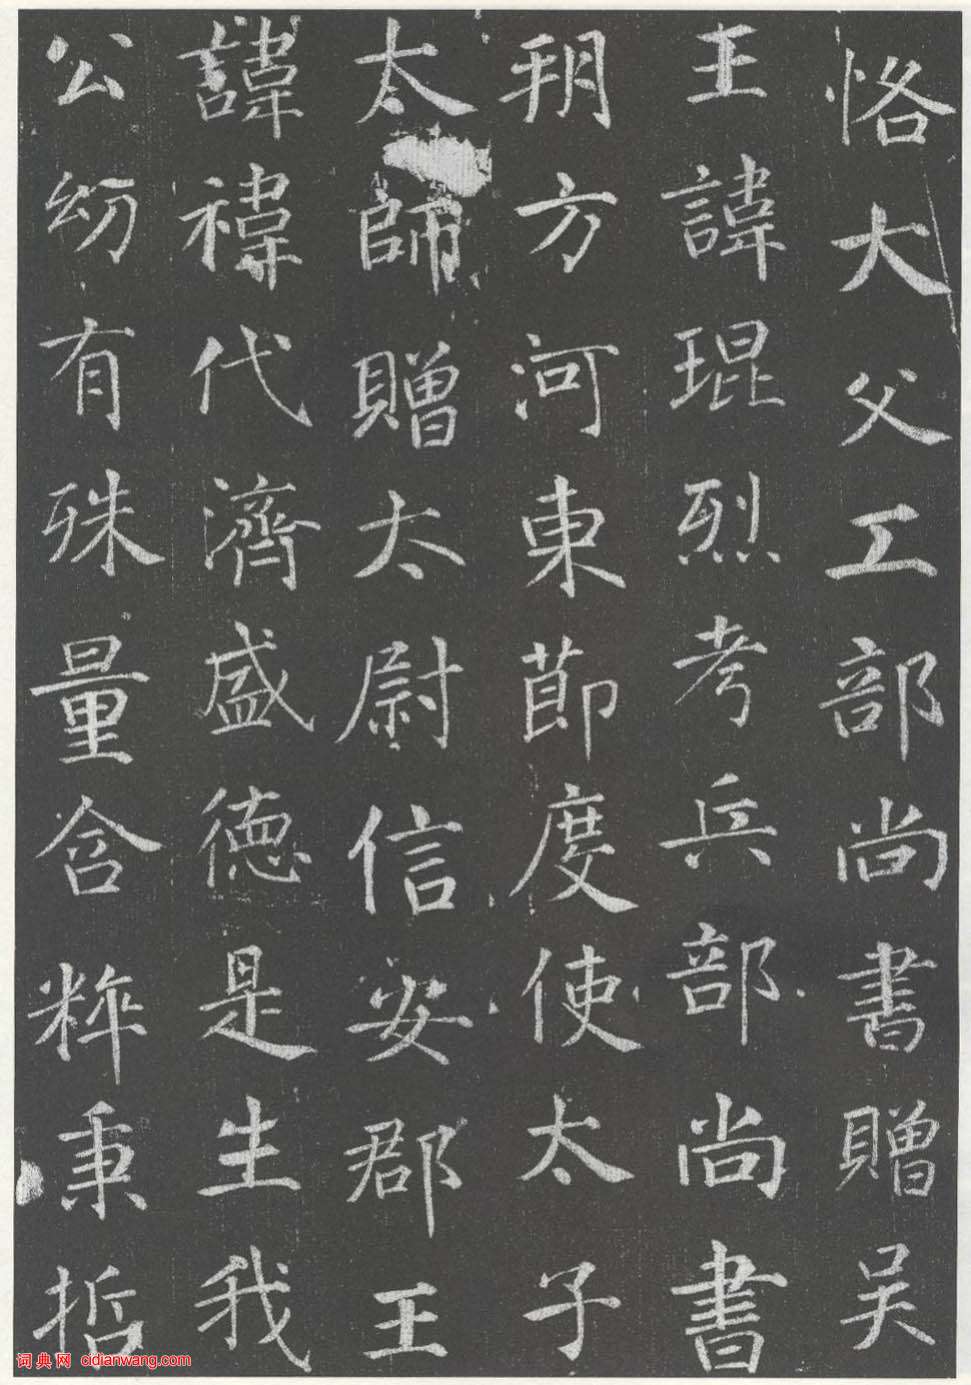 恪大父工部尚書贈吴
王諱琨烈考兵部尚書
朔方河東節度使太子
太師贈太尉信安郡王
諱禕代濟盛德是生我
公幼有殊量含粹秉哲
词典网 cidianwang.com